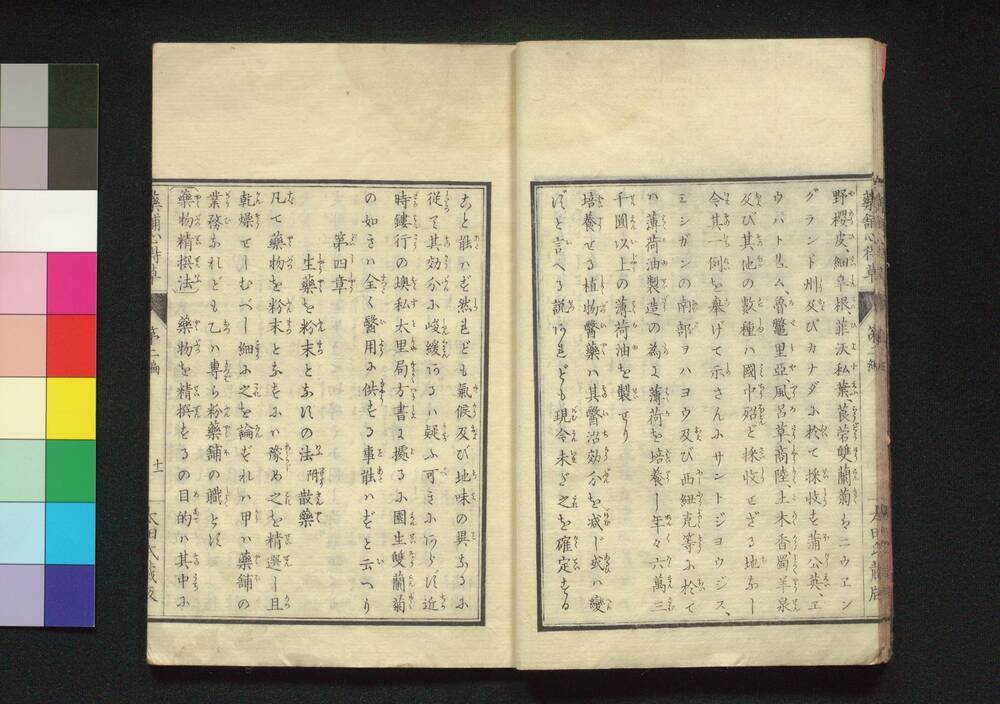 野櫻皮、細辛根、菲沃私葉、莨菪、雙蘭菊ヲニウエン
グランド州及びカナダに於て採收す蒲公英、ヱ
ウパトリュム、魯鼈里亞、風呂草、商陸、土木香、蜀羊泉
及び其他の數種ハ國中殆ど採收せざる地なし
今其一例を舉げて示さんにサントジョウジス、
ミシガンの南部ヲハヨウ及び西紐克等に於て
ハ薄荷油製造の為に薄荷を培養し年々六萬三
千圓以上の薄荷油を製せり
培養せる植物醫藥ハ其醫治効分を减じ或ハ變
ずと言へる說あれども現今未だ之を確定する
こと能ハず然れども氣候及び地味の異なるに
從て其効分に峻緩あるハ疑ふ可きにあらず近
時鏤行の墺私太里局方書に據るに園生雙蘭菊
の如きハ全く醫用に供する事能ハずと云へり
第四章
生藥を粉末となすの法 附散藥
凡て藥物を粉末となすにハ豫め之を精選し且
乾燥せしむべし細に之を論ずれハ甲ハ藥舖の
業務なれども乙ハ專ら粉藥舖の職とす
藥物精撰法 藥物を精撰するの目的ハ其中に
藥舖心得草 第二編 十一 太田氏藏版